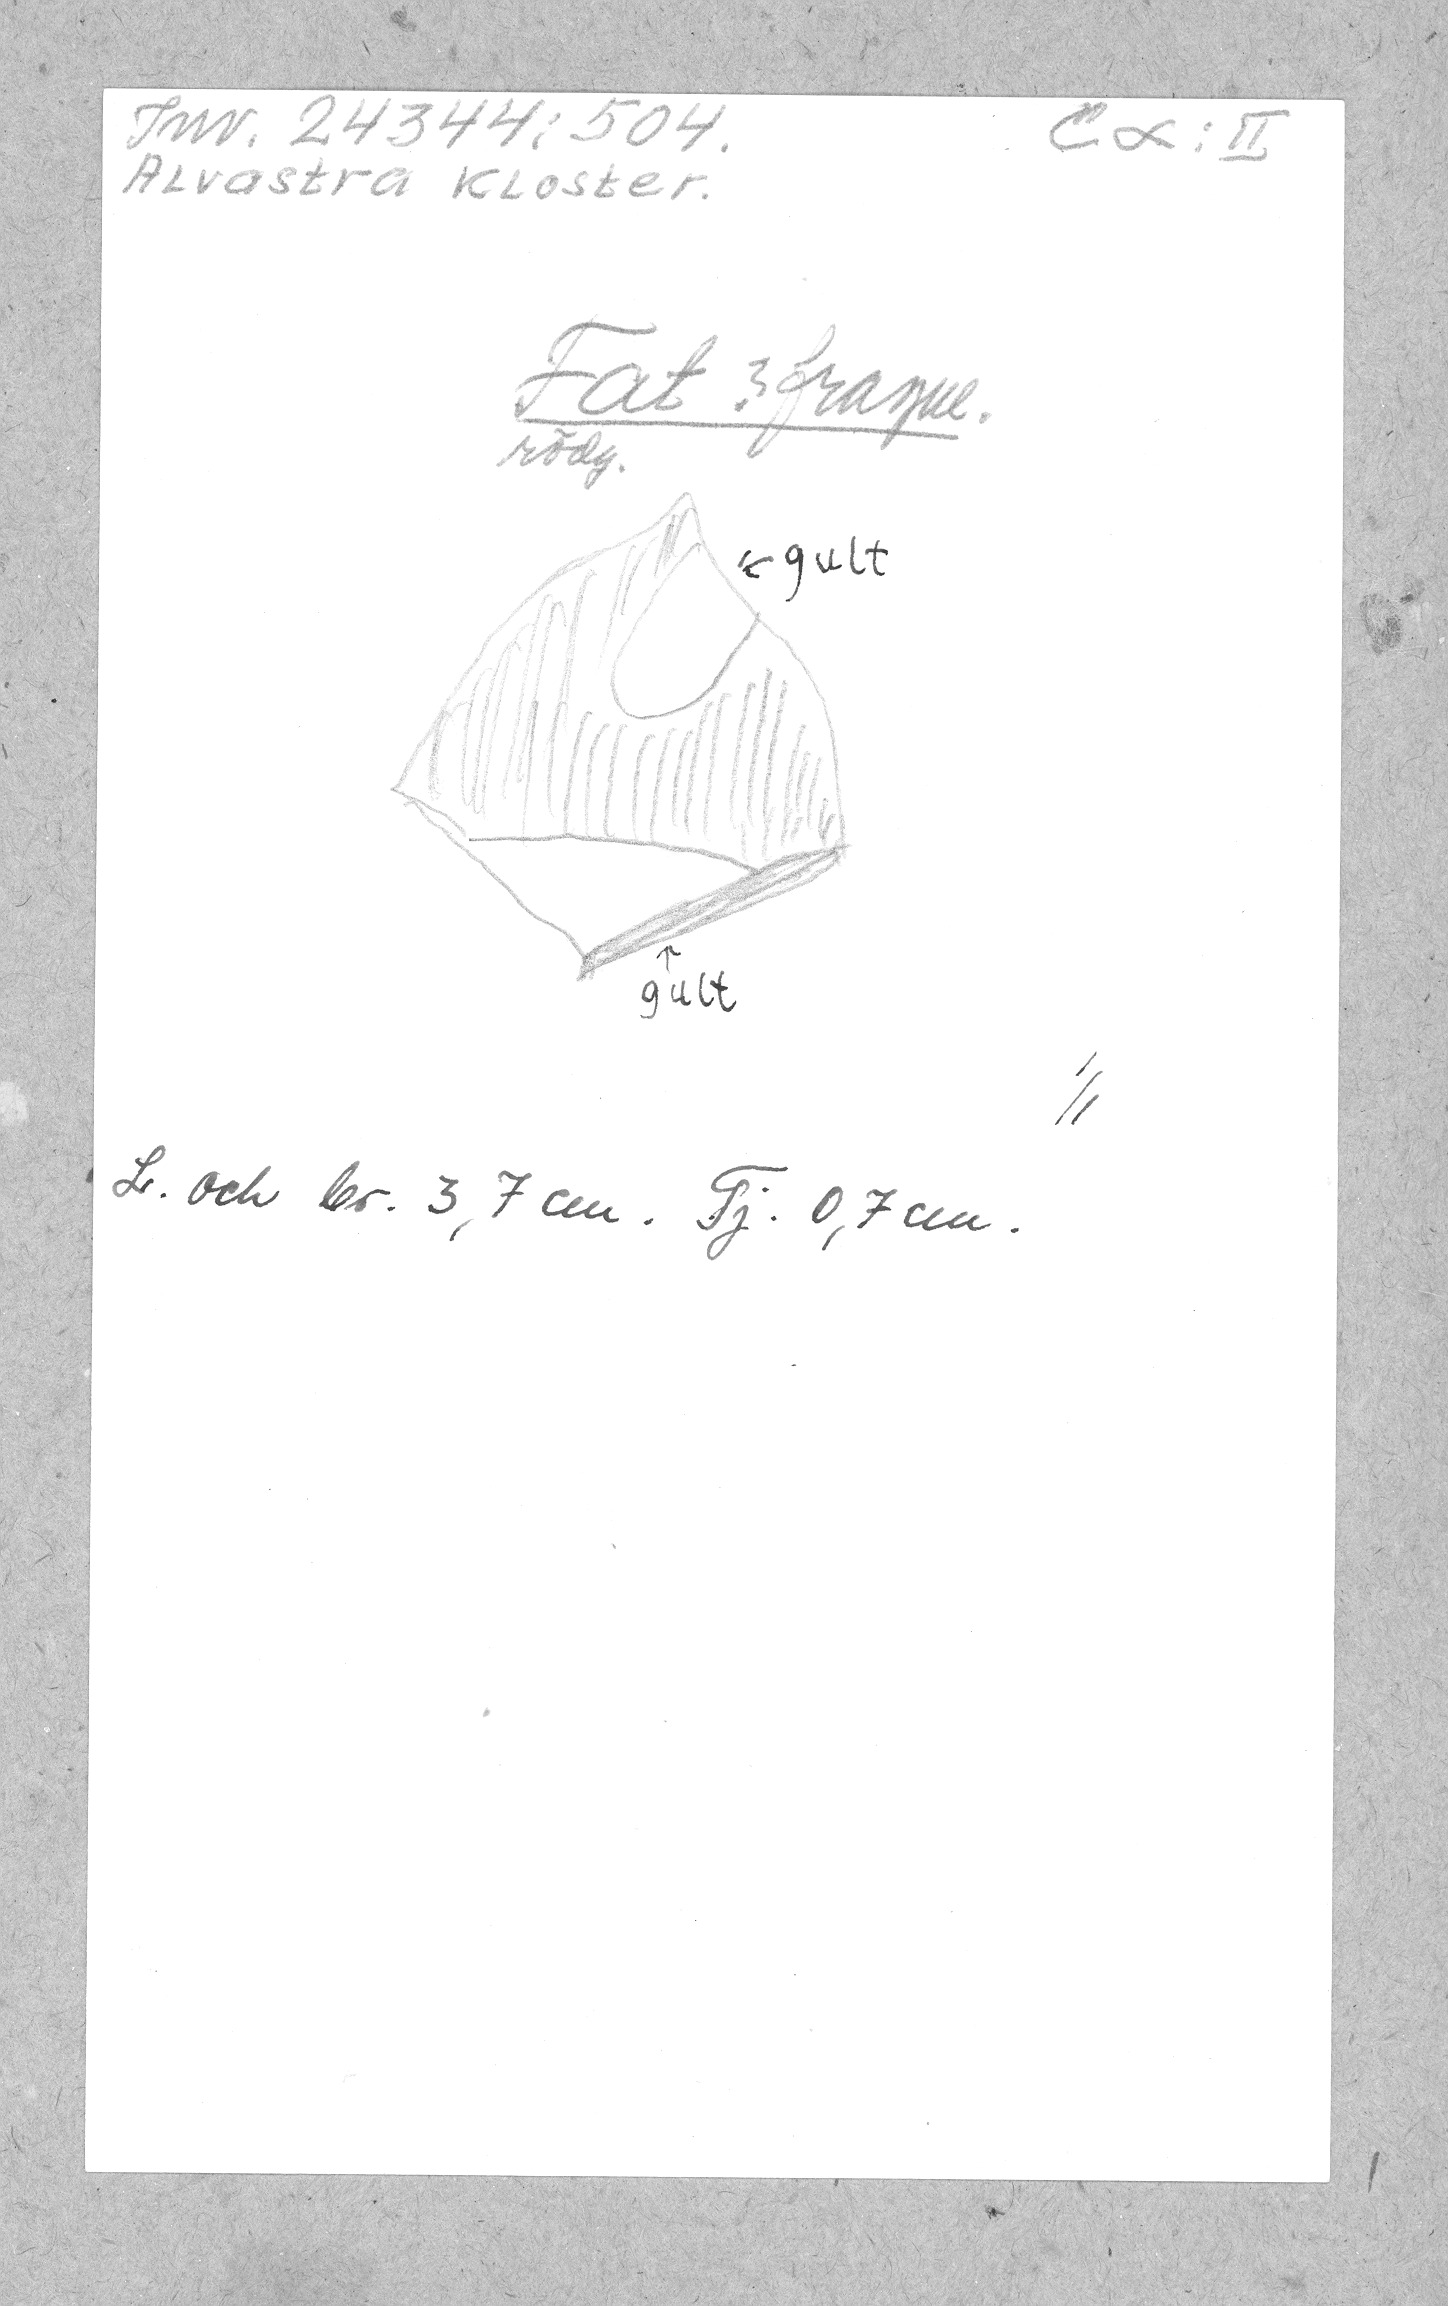 Inv. 24344:504.
C α : II
Alvastra Kloster.
Fat ? fragm.
rödg.
gult
gult
1/1
L. och br. 3,7 cm. Tj. 0,7 cm.